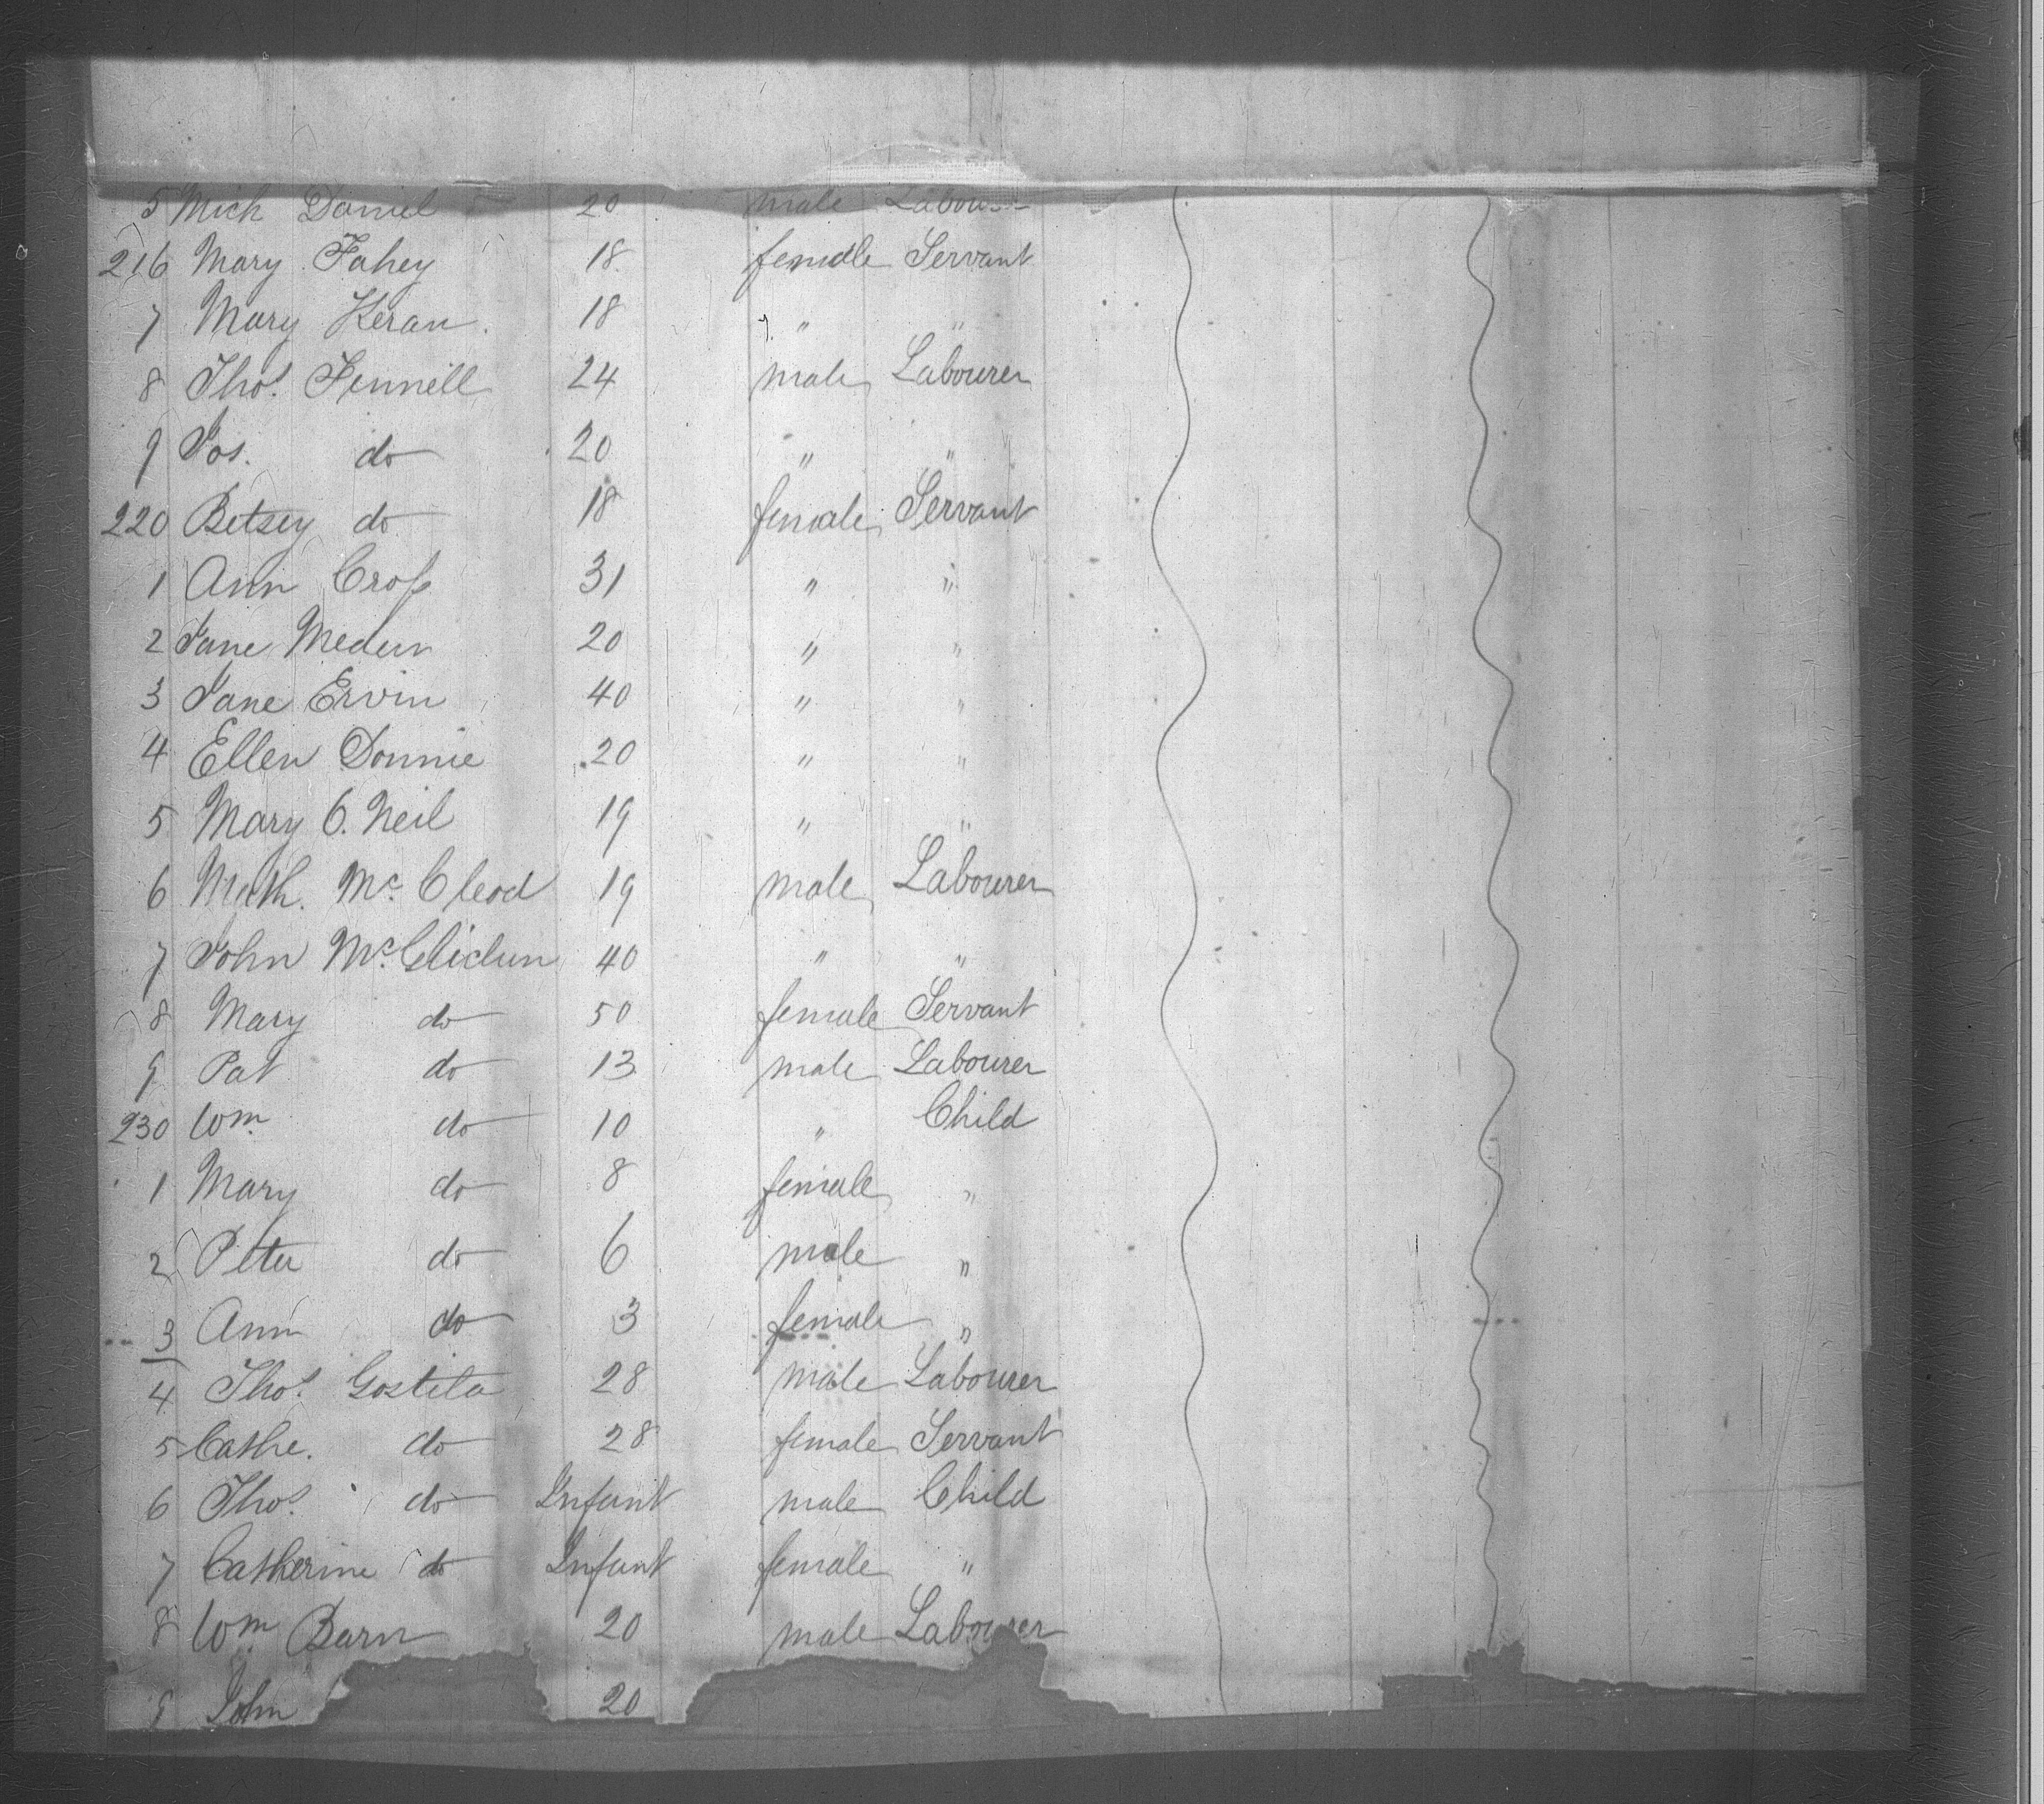 5 Mich Daniel 20 male Labourer
216 Mary Fahey 18 female Servant
7 Mary Keran 18 " "
8 Thos. Fennell 24 male Labourer
9 Jos. do 20 " "
220 Betsey do 18 female Servant
1 Ann Cross 31 " "
2 Jane 20 " "
3 Jane Ervin 40 " "
4 Ellen Donnie 20 " "
5 Mary O. Neil 19 " "
6 Math. Mc. Cleod 19 male Labourer
7 John 40 " "
8 Mary do 50 female Servant
9 Pat do 13 male Labourer
230 Wm. do 10 " Child
1 Mary do 8 female "
2 Peter do 6 male "
3 Ann do 3 female "
4 Thos. 28 male Labourer
5 Cathe. do 28 female Servant
6 Thos. do Infant male Child
7 Catherine do Infant female "
8 Wm Barn 20 male Labourer
9 John 20